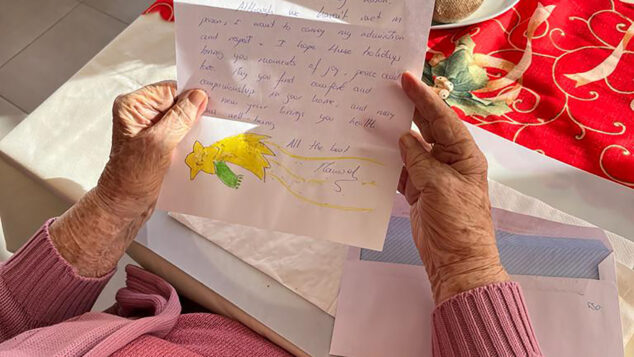 Although we haven't met in
person, I want to convey my admiration
and respect. I hope these holidays
bring you moments of joy, peace and
love. May you find comfort and
companionship in your home, and may
new year brings you health
well-being.
All the best
Manuel